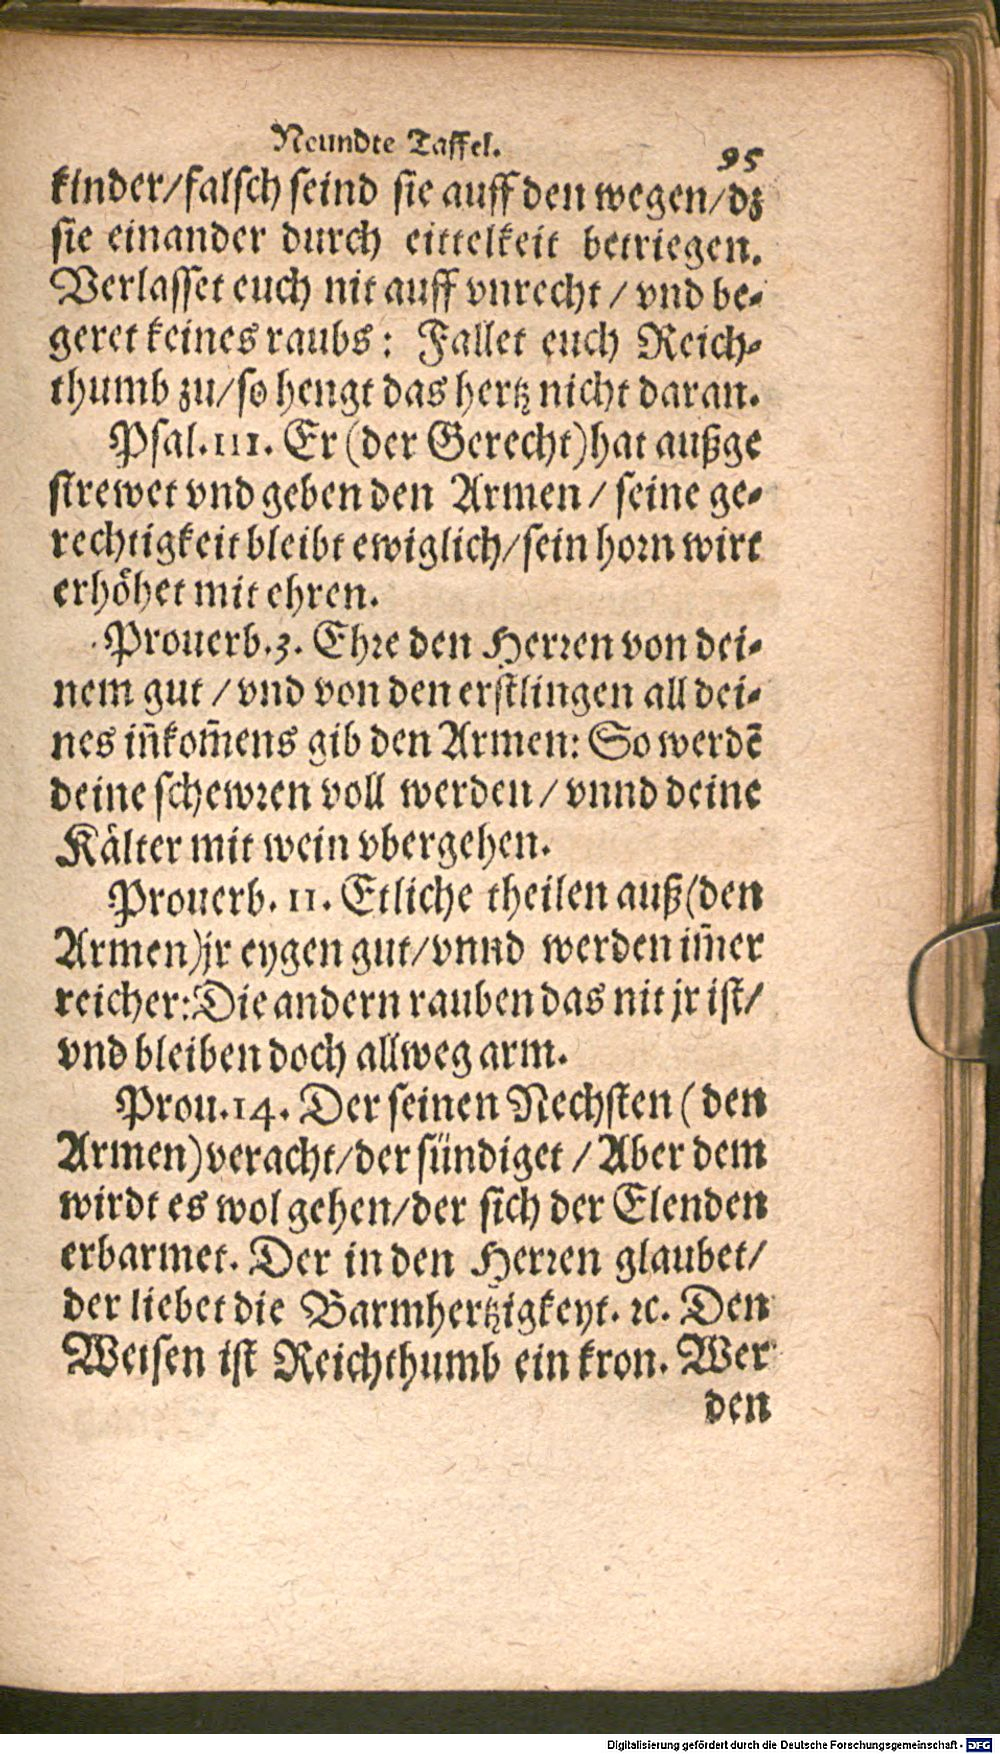 Neundte Taffel.
95
kinder/falsch seind sie auff den wegen/dz
sie einander durch eittelkeit betriegen.
Verlasset euch nit auff vnrecht / vnd be-
geret keines raubs: Fallet euch Reich-
thumb zu/so hengt das hertz nicht daran.
Psal.111. Er (der Gerecht) hat außge
strewet vnd geben den Armen / seine ge-
rechtigkeit bleibt ewiglich/sein horn wirt
erhöhet mit ehren.
Prouerb.3. Ehre den Herren von dei-
nem gut / vnd von den erstlingen all dei-
nes iñkom̃ens gib den Armen: So werdẽ
deine schewren voll werden / vnnd deine
Kälter mit wein vbergehen.
Prouerb. 11. Etliche theilen auß (den
Armen) jr eygen gut/vnnd werden im̃er
reicher: Die andern rauben das nit jr ist/
vnd bleiben doch allweg arm.
Prou.14. Der seinen Nechsten ( den
Armen) veracht/der sündiget / Aber dem
wirdt es wol gehen/der sich der Elenden
erbarmet. Der in den Herren glaubet/
der liebet die Barmhertzigkeyt. ꝛc. Den
Weisen ist Reichthumb ein kron. Wer
den
Digitalisierung gefördert durch die Deutsche Forschungsgemeinschaft - DFG